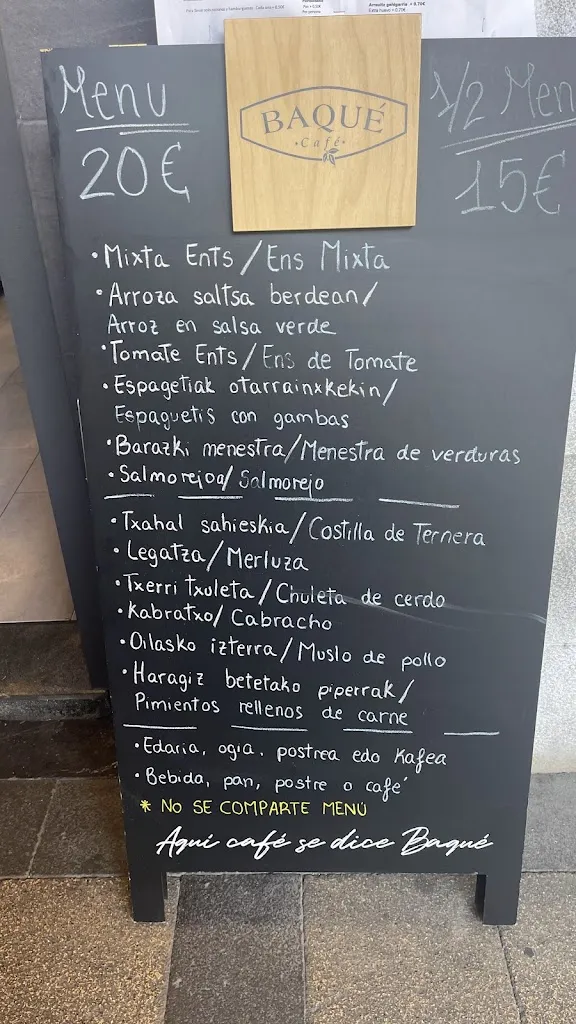 Menu
20€
BAQUÉ
·Café·
1/2 Men
15€
·Mixta Ents/Ens Mixta
·Arroza saltsa berdean/
Arroz en salsa verde
·Tomate Ents/Ens de Tomate
·Espagetiak otarrainxkekin/
Espaguetis con gambas
·Barazki menestra/Menestra de verduras
·Salmorejoa/Salmorejo
·Txahal sahieskia/Costilla de Ternera
·Legatza/Merluza
·Txerri txuleta/Chuleta de cerdo
·Kabratxo/Cabracho
·Oilasko izterra/Muslo de pollo
·Haragiz betetako piperrak/
Pimientos rellenos de carne
·Edaria, ogia, postrea edo Kafea
·Bebida, pan, postre o café
* NO SE COMPARTE MENÚ
Aquí café se dice Baqué